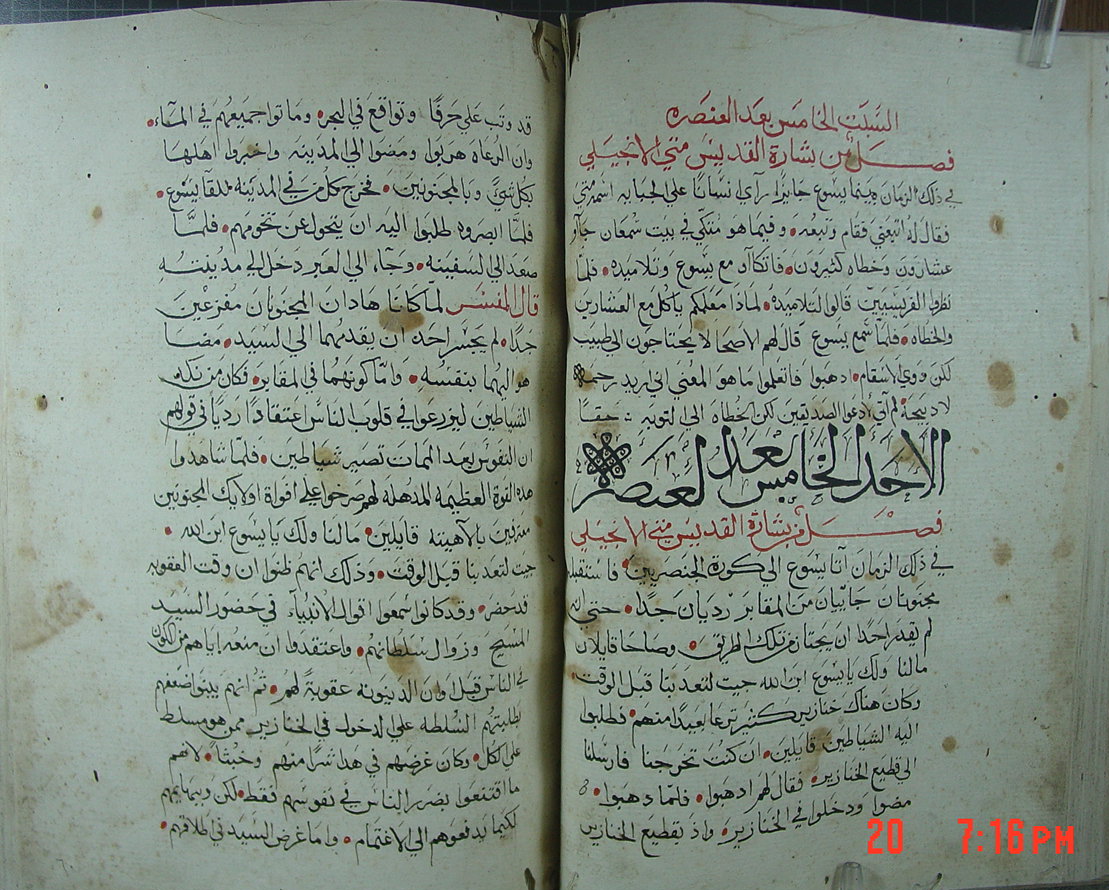 السبت الخامس بعد العنصره
فصل من بشارة القديس متي الانجيلي
في ذلك الزمان بينما يسوع جايزا رآي انسانا علي الجبايه اسمه متي
فقال له اتبعني فقام وتبعه. وفيما هو متكي في بيت سمعان جآو
عشارون وخطاه كثيرون. فاتكآو مع يسوع وتلاميذه. فلما
نظروا الفريسيين قالوا لتلاميذه. لماذا معلمكم ياكل مع العشارين
والخطاه. فلما سمع يسوع قال لهم الاصحا لا يحتاجون الي طبيب
لكن ذوي الاسقام. ادهبوا فاتعلموا ما هو المعني اني اريد رحمه
لا دبيحة لم آتي ادعوا الصديقين لكن الخطاه الي التوبه حقا
الاحد الخامس بعد العنصره
فصل من بشارة القديس متي الانجيلي
في ذلك الزمان آتا يسوع الي كورة الجنصريين فاستقبله
مجنونان جاييان من المقابر رديان جدا. حتي انه
لم يقدر احدا ان يجتاز من تلك الطريق. وصاحا قايلان
مالنا ولك يا يسوع ابن الله جيت لتعدبنا قبل الوقت.
وكان هناك خنازير كثير ترعا بعيدا منهم. فطلبوا
اليه الشياطين قايلين. ان كنت تخرجنا فارسلنا
الي قطيع الخنازير. فقال لهم ادهبوا. فلما دهبوا.
مضوا ودخلوا في الخنازير. واذ بقطيع الخنازير
قد وتب علي حرفا وتواقع في البحر. وماتوا جميعهم في المآء.
وان الرعاه هربوا ومضوا الي المدينه واخبروا اهلها
بكل شي وبالمجنونين. فخرج كل من في المدينه للقا يسوع.
فلما ابصروه طلبوا اليه ان يتحول عن تخومهم. فلما
صعد الي السفينه. وجآء الي العبر دخل الي مدينته
قال المفسر لما كانا هادان المجنونان مفزعين
جدا. لم يجسر احد ان يقدمهما الي السيد. مضا
هو اليهما بنفسه. واما كونهما في المقابر. فكان من
الشياطين ليزرعوا في قلوب الناس اعتقادا رديا في قولهم
ان النفوس بعد الممات تصير شياطين. فلما شاهدوا
هذه القوة العظيمه المدهله لهم صرخوا علي افواة اولايك المجنونين
معترفين بالآهيته قايلين. مالنا ولك يا يسوع ابن الله.
جيت لتعدبنا قبل الوقت. وذلك انهم ظنوا ان وقت العقوبه
قد حضر. وقد كانوا سمعوا اقوال الانبيآء في حضور السيد
المسيح وزوال سلطانهم. واعتقدوا ان منعه اياهم من الكون
في الناس قبل اوان الدينونه عقوبة لهم. ثم انهم بينوا ضعفهم
بطلبتهم السلطه علي الدخول في الخنازير ممن هو مسلط
علي الكل. وكان غرضهم في هدا شرا منهم وخبثا. لانهم
ما اقتنعوا بضرر الناس في نفوسهم فقط. لكن وبهايمهم
لكيما يدفعوهم الي الاغتمام. واما غرض السيد في طلاقهم.
20 7:16 PM